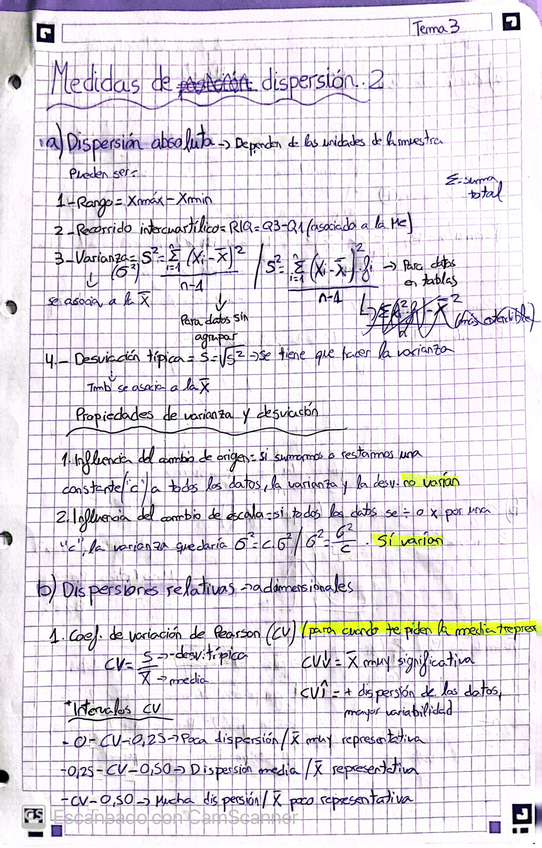 Tema 3
Medidas de posición dispersión. 2
a) Dispersión absoluta → Dependen de las unidades de la muestra
Pueden ser:
Σ=suma total
1-Rango = Xmáx - Xmin
2-Recorrido intercuartílico = RIQ = Q3-Q1 (asociado a la Me)
3-Varianza = S² = Σ(Xi-X̄)² / n-1 / S² = Σ(Xi-X̄)²·fi / n-1 → Para datos en tablas
(σ²)
se asocia a la X̄
Para datos sin agrupar
4.- Desviación típica = S = √S² → se tiene que hacer la varianza
Tmb se asocia a la X̄
Propiedades de varianza y desviación
1. Influencia del cambio de origen = si sumamos o restamos una
constante ("c") a todos los datos, la varianza y la desv. no varían
2. Influencia del cambio de escala = si todos los datos se ÷ o x por una
"c", la varianza quedaría σ² = c·σ² / σ² = σ²/c . Sí varían
b) Dispersiones relativas → adimensionales
1. Coef. de variación de Pearson (CV) (para cuando te piden la media + repres
CV = S → desv. típica / X̄ → media
CV↓ = X̄ muy significativa
CV↑ = + dispersión de los datos,
mayor variabilidad
*Intervalos CV
- 0 - CV - 0,25 → Poca dispersión / X̄ muy representativa
- 0,25 - CV - 0,50 → Dispersión media / X̄ representativa
- CV - 0,50 → Mucha dispersión / X̄ poco representativa
CS Escaneado con CamScanner